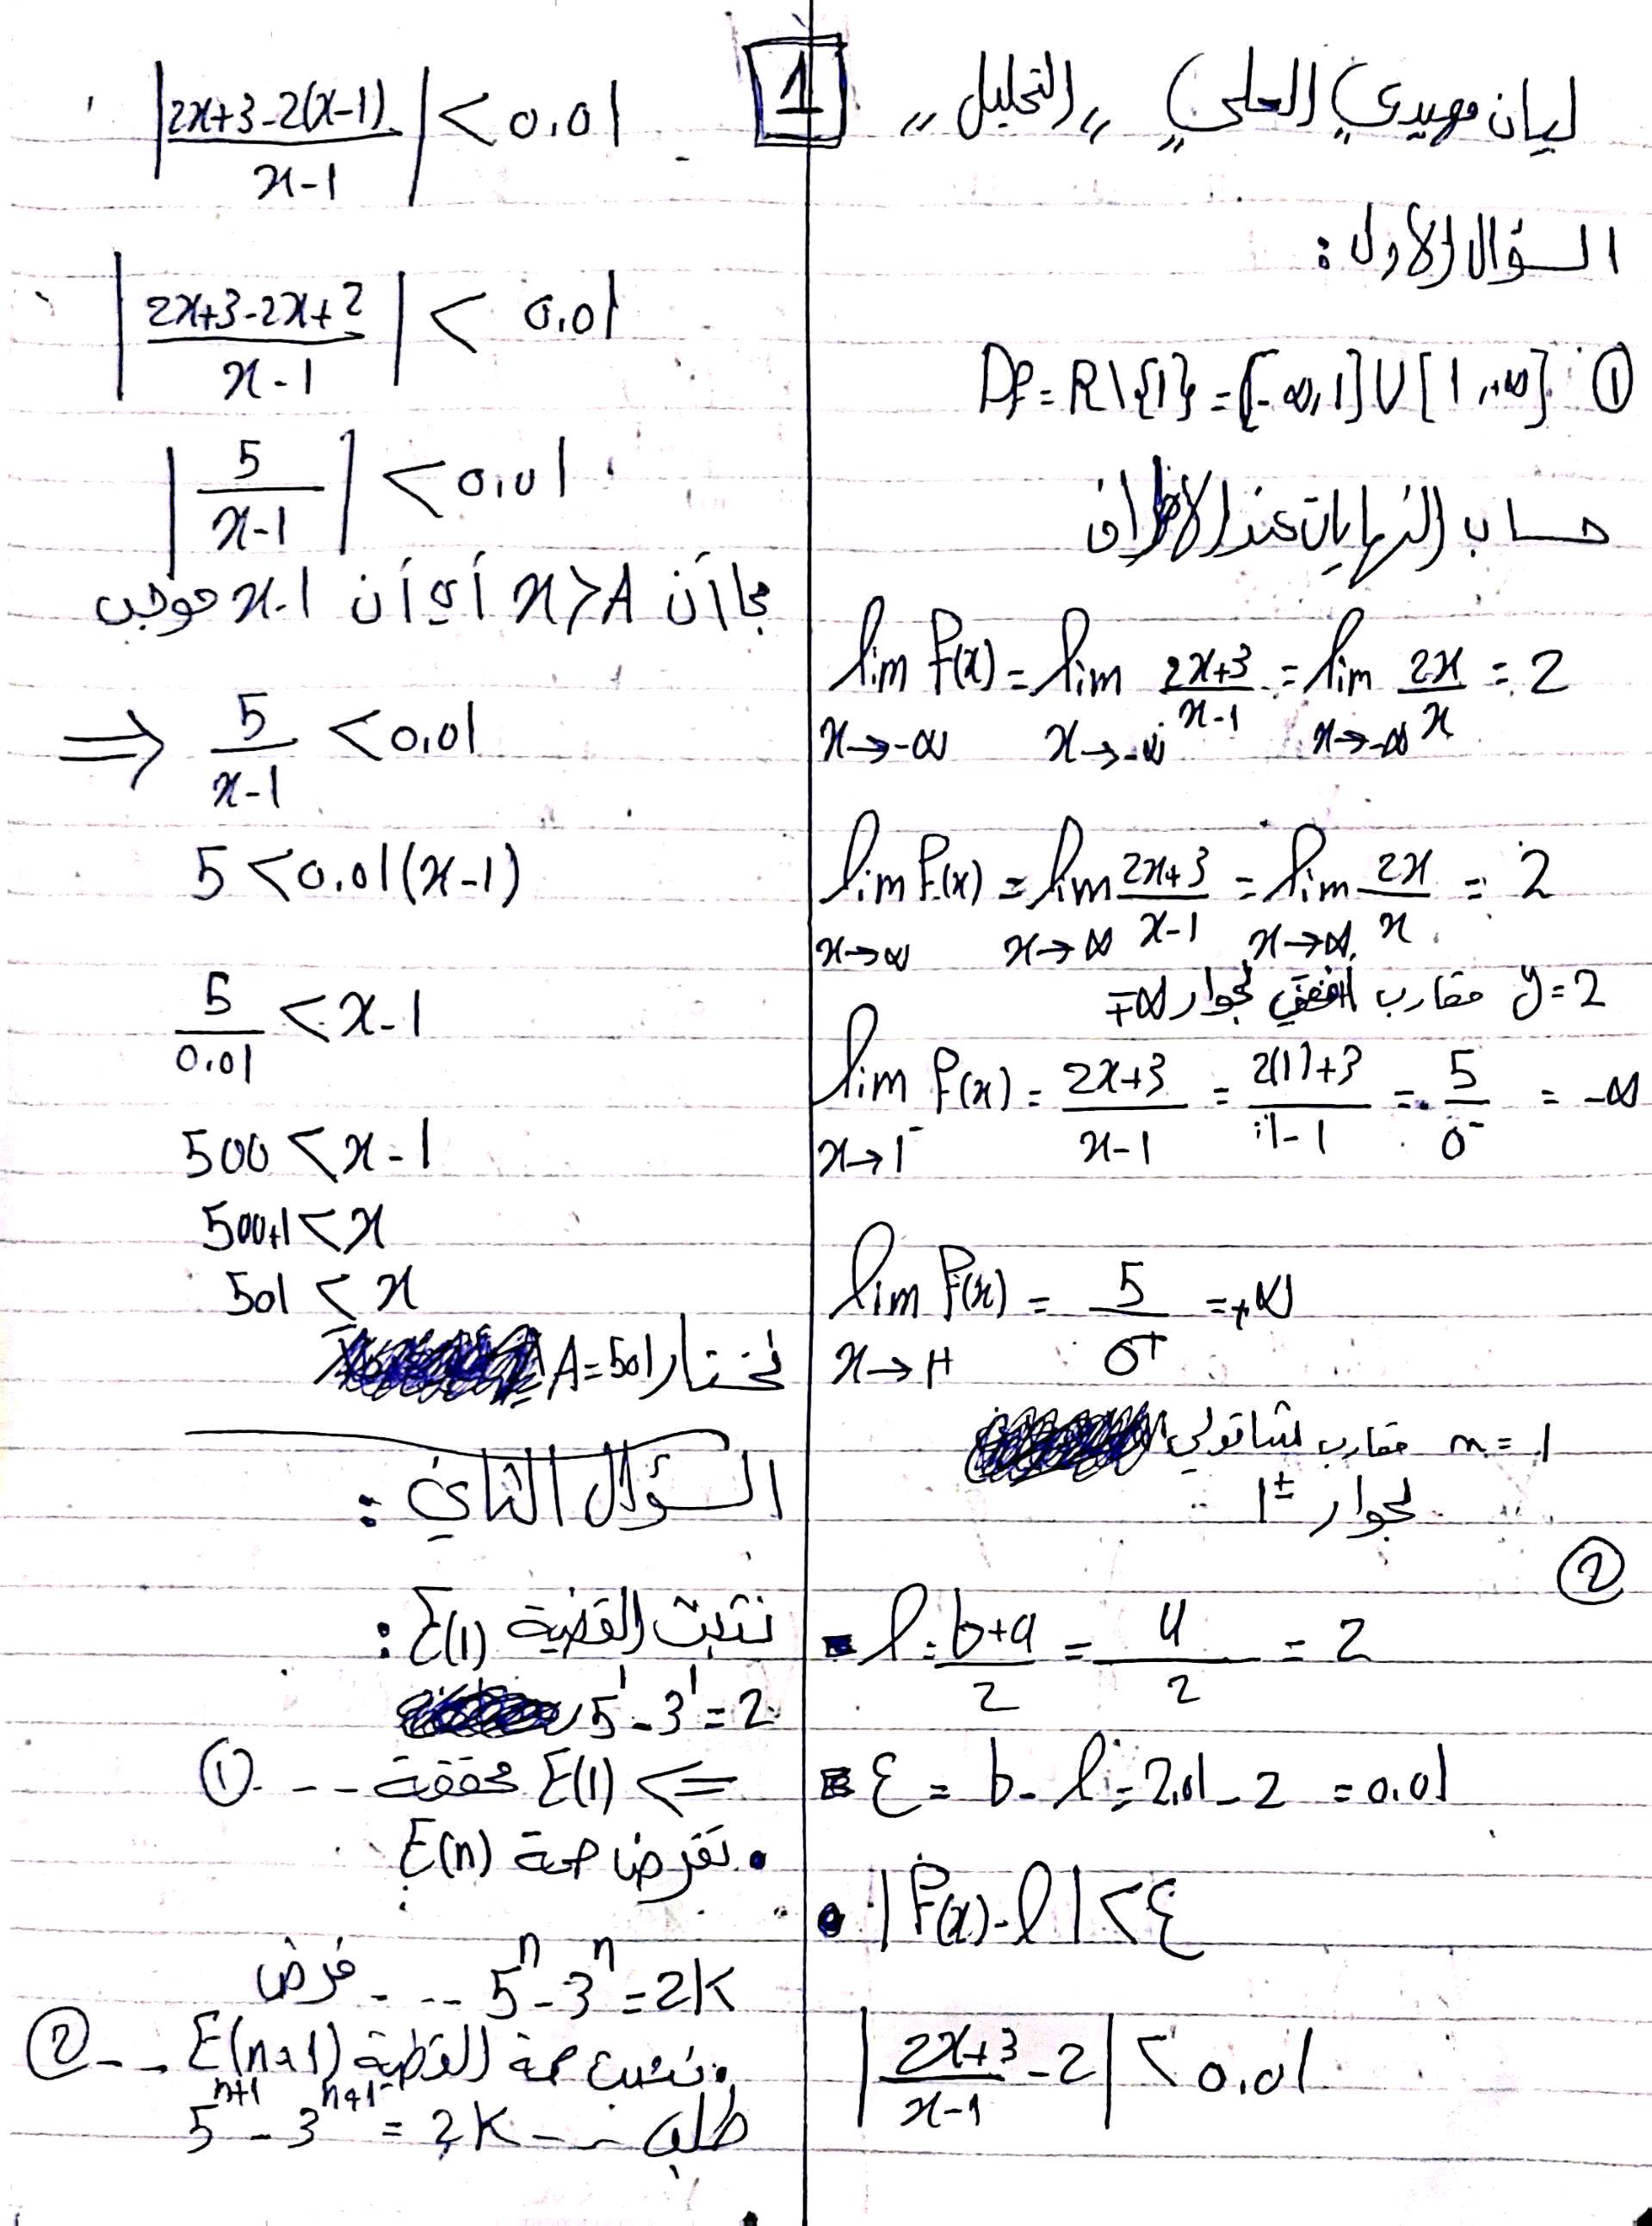 ليان مهيدي العلي "التحليل" 1
السؤال الأول:
① Df = R\{1} = [-∞,1]∪[1,+∞]
حساب النهايات عند الأطراف
lim f(x) = lim (2x+3)/(x-1) = lim 2x/x = 2
x→-∞ x→-∞ x→-∞
lim f(x) = lim (2x+3)/(x-1) = lim 2x/x = 2
x→∞ x→∞ x→∞
y=2 مقارب افقي بجوار ∓∞
lim f(x) = (2x+3)/(x-1) = (2(1)+3)/(1-1) = 5/0⁻ = -∞
x→1⁻
lim f(x) = 5/0⁺ = +∞
x→1+
x=1 مقارب شاقولي
بجوار 1±
②
l = (b+a)/2 = 4/2 = 2
ε = b-l = 2.01-2 = 0.01
• |f(x)-l| < ε
|(2x+3)/(x-1) - 2| < 0.01
|(2x+3-2(x-1))/(x-1)| < 0.01
|(2x+3-2x+2)/(x-1)| < 0.01
|5/(x-1)| < 0.01
بما أن x>A أي أن x-1 موجب
⇒ 5/(x-1) < 0.01
5 < 0.01(x-1)
5/0.01 < x-1
500 < x-1
500+1 < x
501 < x
نختار A=501
السؤال الثاني:
نثبت القضية E(1):
5¹-3¹=2
⇐ E(1) محققة --- ①
• نفرض صحة E(n)
5ⁿ-3ⁿ=2K --- فرض
• نثبت صحة القضية E(n+1) --- ②
5ⁿ⁺¹-3ⁿ⁺¹=2K --- طلب